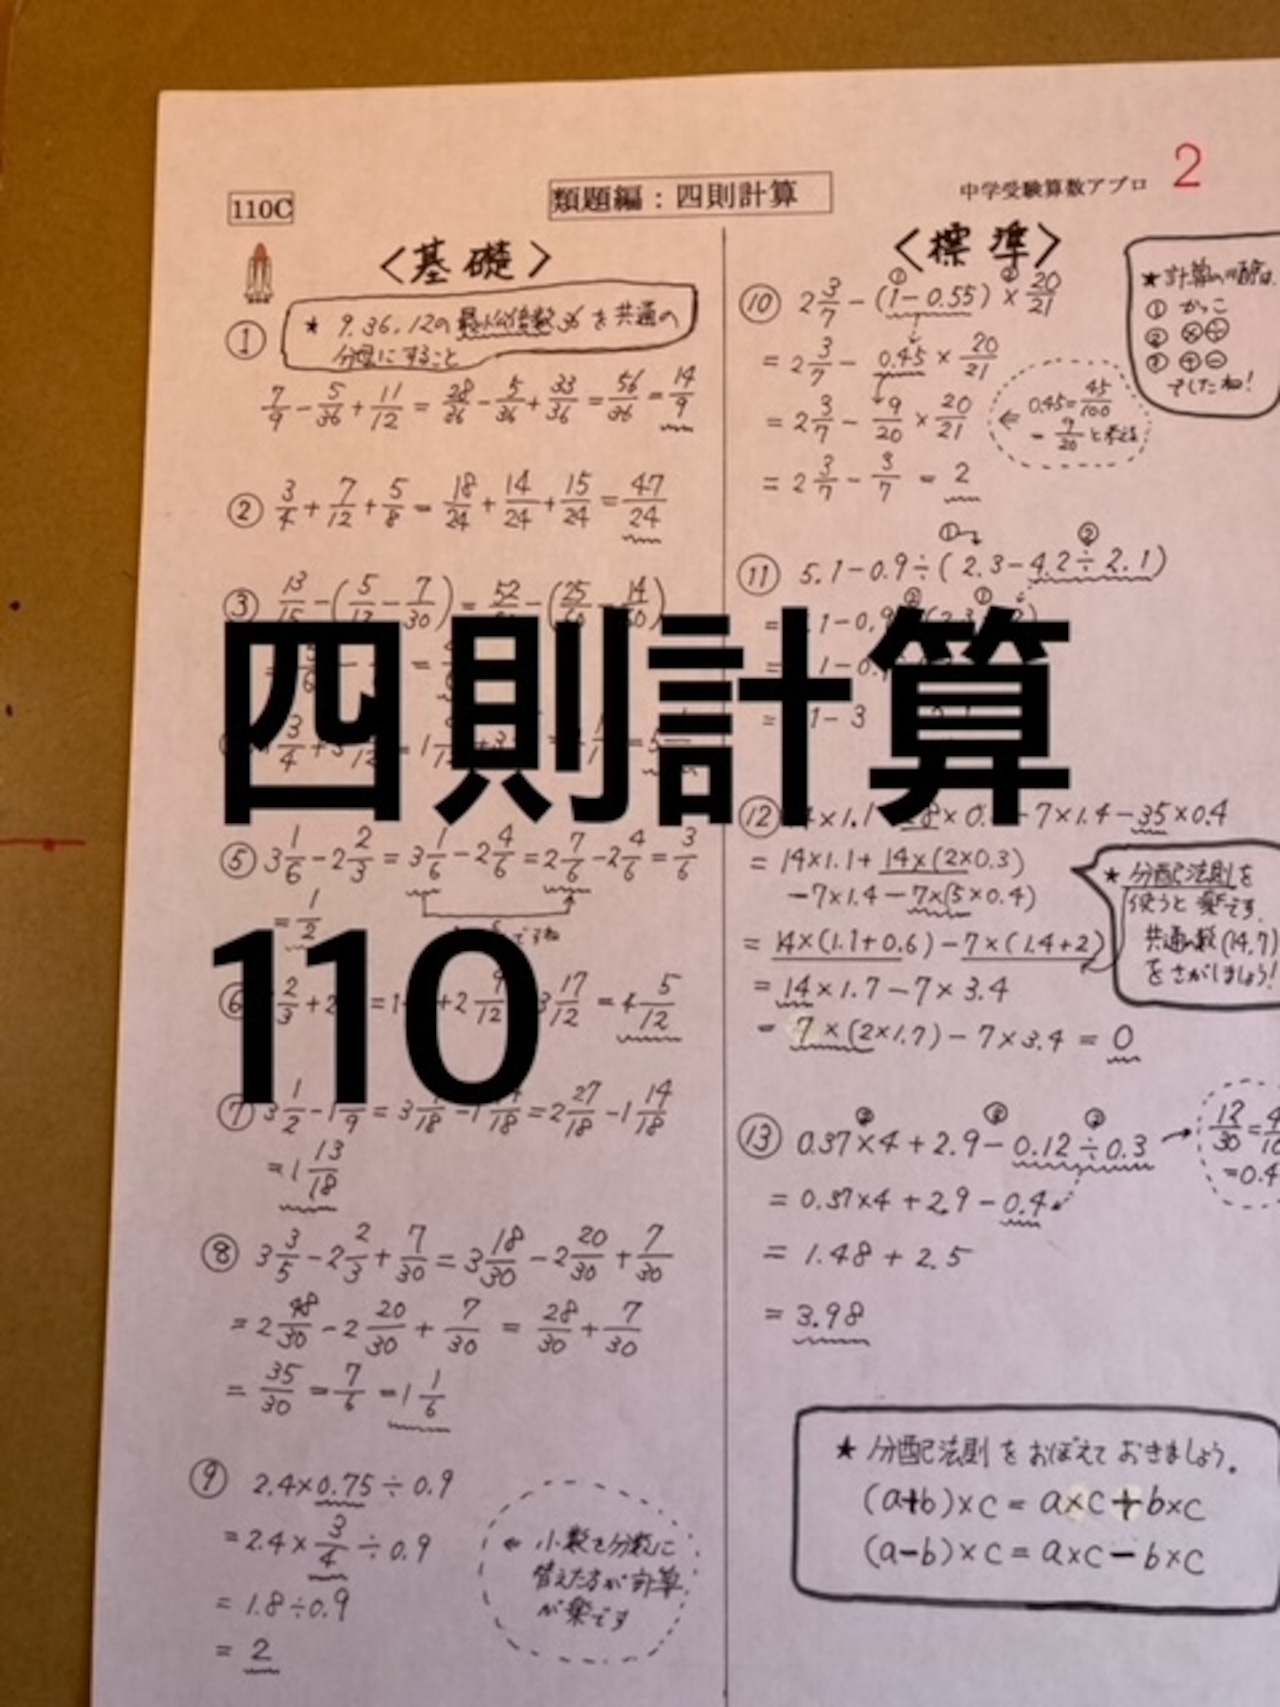 110C
類題編：四則計算
中学受験算数アプロ 2
＜基礎＞
① ★ 9, 36, 12の最小公倍数36を共通の
分母にすること
7/9 - 5/36 + 11/12 = 28/36 - 5/36 + 33/36 = 56/36 = 14/9
② 3/4 + 7/12 + 5/8 = 18/24 + 14/24 + 15/24 = 47/24
③ 13/15 - (5/12 - 7/30) = 52/60 - (25/60 - 14/60)
四則計算
110
⑤ 3 1/6 - 2 2/3 = 3 1/6 - 2 4/6 = 2 7/6 - 2 4/6 = 3/6
= 1/2
ですね
⑥ 2/3 + 2 = 1 + 2 9/12 3 17/12 = 4 5/12
⑦ 3 1/2 - 1 /9 = 3 /18 - 1 /18 = 2 27/18 - 1 14/18
= 1 13/18
⑧ 3 3/5 - 2 2/3 + 7/30 = 3 18/30 - 2 20/30 + 7/30
= 2 48/30 - 2 20/30 + 7/30 = 28/30 + 7/30
= 35/30 = 7/6 = 1 1/6
⑨ 2.4×0.75÷0.9
= 2.4×3/4÷0.9
= 1.8÷0.9
= 2
← 小数を分数に
方が計算
が楽です
＜標準＞
① ②
⑩ 2 3/7 - (1-0.55) × 20/21
= 2 3/7 - 0.45 × 20/21
= 2 3/7 - 9/20 × 20/21
= 2 3/7 - 3/7 = 2
← 0.45=45/100
= 9/20 と考える
★計算の順番は
① かっこ
② ×÷
③ +-
でしたね!
① ②
⑪ 5.1-0.9÷(2.3-4.2÷2.1)
⑫ ×1.1 ×0. -7×1.4-35×0.4
= 14×1.1+14×(2×0.3)
-7×1.4-7×(5×0.4)
= 14×(1.1+0.6)-7×(1.4+2)
= 14×1.7-7×3.4
= 7×(2×1.7)-7×3.4 = 0
★分配法則を
使うと楽です.
共通の数(14,7)
をさがしましょう!
⑬ 0.37×4+2.9-0.12÷0.3
= 0.37×4+2.9-0.4
= 1.48+2.5
= 3.98
→ 12/30 = 4/10
=0.4
★ 分配法則をおぼえておきましょう.
(a+b)×c = a×c+b×c
(a-b)×c = a×c-b×c